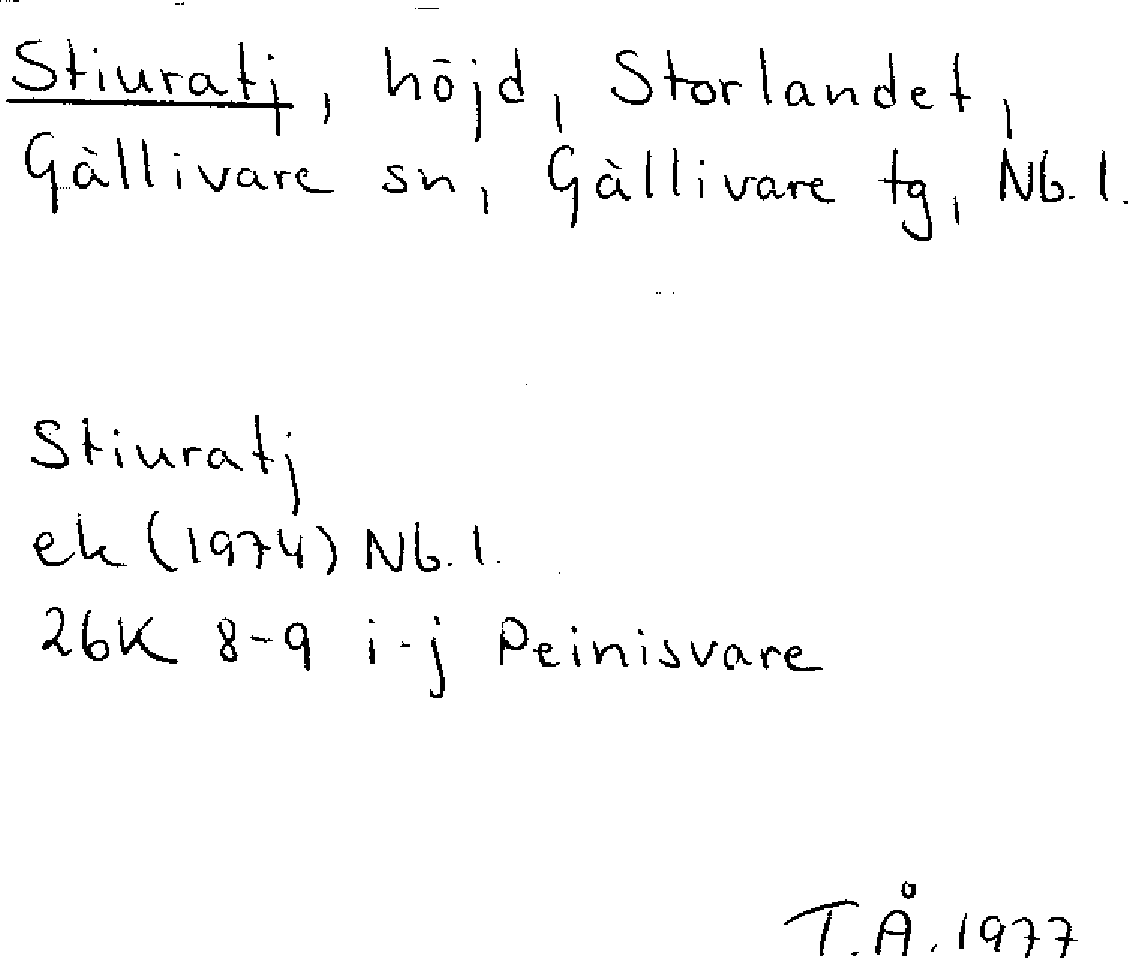 Stiuratj, höjd, Storlandet,
Gällivare sn, Gällivare tg, Nb. l.
Stiuratj
ek (1974) Nb. l.
26K 8-9 i-j Peinisvare
T.Å. 1977